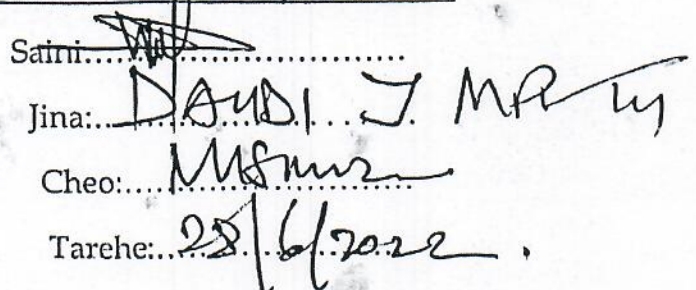 Saini:
Jina: DAUDI J
Cheo:
Tarehe: 28/6/2022.